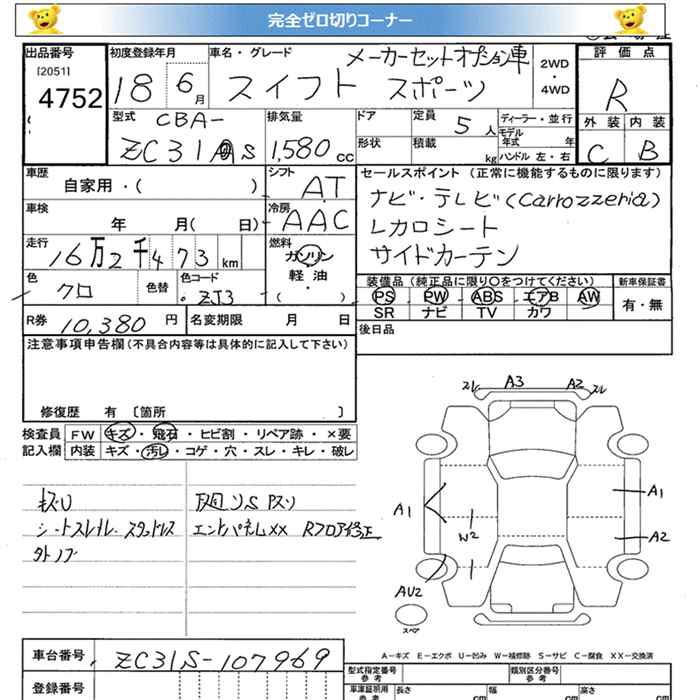 完全ゼロ切りコーナー
出品番号
[2051]
4752
初度登録年月
18 6月
車名・グレード
メーカーセットオプション車
スイフト スポーツ
2WD
・
4WD
評価点
R
外装 内装
C B
型式
CBA-
ZC31S
排気量
1,580 cc
ドア
形状
定員
5人
積載
kg
ディーラー・並行
モデル年式 年
ハンドル 左・右
車歴
自家用・( )
シフト
AT
車検
年 月( 日)
冷房
AAC
走行
16万2千473 km
燃料
ガソリン
軽油
・( )
色
クロ
色替
色コード
ZJ3
R券 10,380 円
名変期限 月 日
セールスポイント(正常に機能するものに限ります)
ナビ・テレビ(Carozzeria)
レカロシート
サイドカーテン
装備品(純正品に限り○をつけてください)
PS PW ABS エアB AW
SR ナビ TV カワ
新車保証書
有・無
後日品
注意事項申告欄(不具合内容等は具体的に記入して下さい)
修復歴 有〔箇所 〕
検査員 FW キズ・飛石・ヒビ割・リペア跡・×要
記入欄 内装 キズ・汚レ・コゲ・穴・スレ・キレ・破レ
キズU
エンドパネルXX Rフロア修正
スレ A3 A2 スレ
A1
A1
W2
A2
AU2
スペア
A-キズ E-エクボ U-凹み W-補修跡 S-サビ C-腐食 XX-交換済
車台番号 ZC31S-107969
登録番号
型式指定番号
参考
類別区分番号
参考
車庫証明用
参考
長さ cm
幅 cm
高さ cm